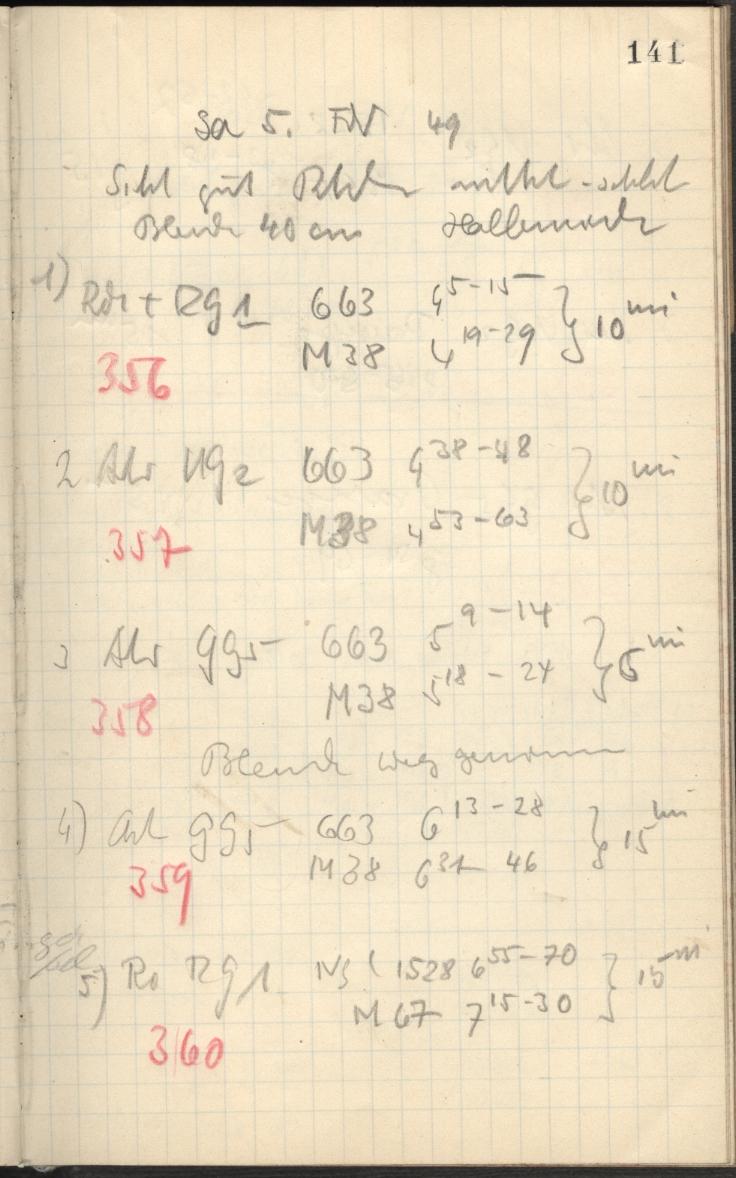 141
Sa 5. FEV 49
Sicht gut mittel-schlecht
Blende 40 cm
1) RG1 663 4 5-15 } 10 min
M38 4 19-29
356
2 UG2 663 4 38-48 } 10 min
M38 4 53-63
357
3 GG5 663 5 9-14 } 5 min
M38 5 18-24
358
Blende weg genommen
4) GG5 663 6 13-28 } 15 min
M38 6 31-46
359
5) RG1 1528 6 55-70 } 15 min
M67 7 15-30
360